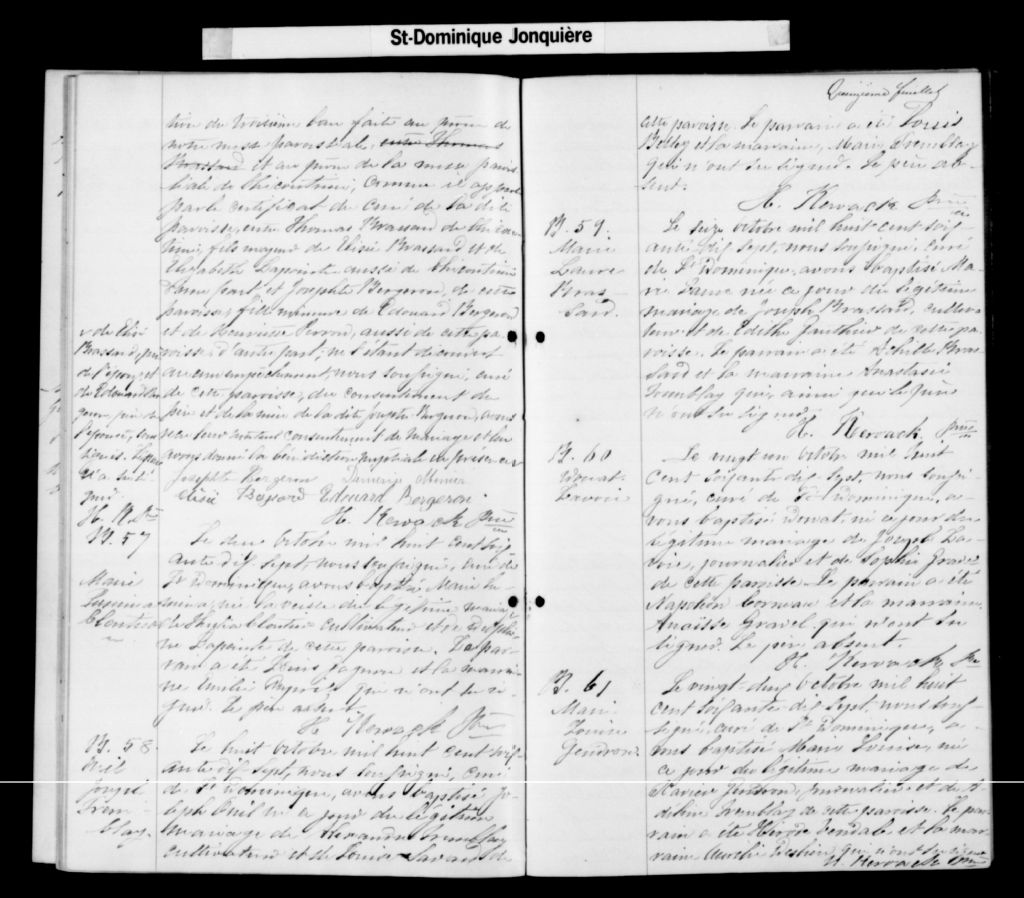 St-Dominique Jonquière
tion de troisième ban faite au prône de
notre messe paroissiale, entre Thomas
Brassard et au prône de la messe parois
siale de Chicoutimi, comme il appert
par le certificat du curé de la dite
paroisse, entre Thomas Brassard de Chicou
timi, fils majeur de Elisé Brassard et de
Elizabeth Lapointe aussi de Chicoutimi
d'une part et Josephte Bergeron, de cette
paroisse, fille mineure de Edouard Bergeron
et de Henriette Perron, aussi de cette pa
roisse d'autre part; ne s'étant découvert
aucun empêchement, nous soussigné, curé
de cette paroisse, du consentement du
père et de la mère de la dite Josephte Bergeron, avons
reçu leur mutuel consentement de mariage et leur
avons donné la bénédiction nuptiale en présence
v de Elisé
Brassard, père
de l'époux, et
de Edouard Ber
geron, père de
l'épouse,
H. K. Ptre
Josephte Bergeron
Elisé Brassard Edouard Bergeron
H. Kerouack Ptre
B. 57
Marie
Cloutier
Le deux Octobre mil huit cent soix
ante dix sept, nous soussigné, curé de
St Dominique, avons baptisé Marie
née la veille du légitime maria
ge de Cloutier cultivateur et de
Lapointe de cette paroisse. Le par
rain a été Louis Gagnon et la marrai
ne Emilie qui n'ont su si
gner. Le père absent.
H. Kerouack Ptre
B. 58.
Joseph
Trem
blay.
Le huit Octobre mil huit cent soix
ante dix sept, nous soussigné, curé
de St Dominique, avons baptisé Jo
seph né ce jour du légitime
mariage de Alexandre Tremblay
cultivateur et de Louise Savard de
Quinzième feuillet
cette paroisse. Le parrain a été Louis
et la marraine, Marie Tremblay
qui n'ont su signer. Le père ab
sent.
H. Kerouack Ptre
B. 59.
Marie
Laure
Bras
sard.
Le seize Octobre mil huit cent soix
ante dix sept, nous soussigné, curé
de St Dominique, avons baptisé Ma
rie Laure née ce jour du légitime
mariage de Joseph Brassard, cultiva
teur et de Edith Gauthier de cette pa
roisse. Le parrain a été Achille Bras
sard et la marraine Anastasie
Tremblay qui, ainsi que le père
n'ont su signer.
H. Kerouack Ptre
B. 60
Donat
Lavoie
Le vingt un Octobre mil huit
cent soixante dix sept, nous soussi
gné, curé de St Dominique, a
vons baptisé Donat, né ce jour du
légitime mariage de Joseph La
voie, journalier et de Sophie Gravel
de cette paroisse. Le parrain a été
Napoléon Corneau et la marraine
Anaïsse Gravel qui n'ont su
signer. Le père absent.
H. Kerouack Ptre
B. 61
Marie
Louise
Gendron.
Le vingt-deux Octobre mil huit
cent soixante dix sept, nous sous
signé, curé de St Dominique, a
vons baptisé Marie Louise, née
ce jour du légitime mariage de
Xavier Gendron, journalier et de A
deline Tremblay de cette paroisse. Le par
rain a été et la mar
raine Aurélie qui n'ont su signer
H. Kerouack Ptre